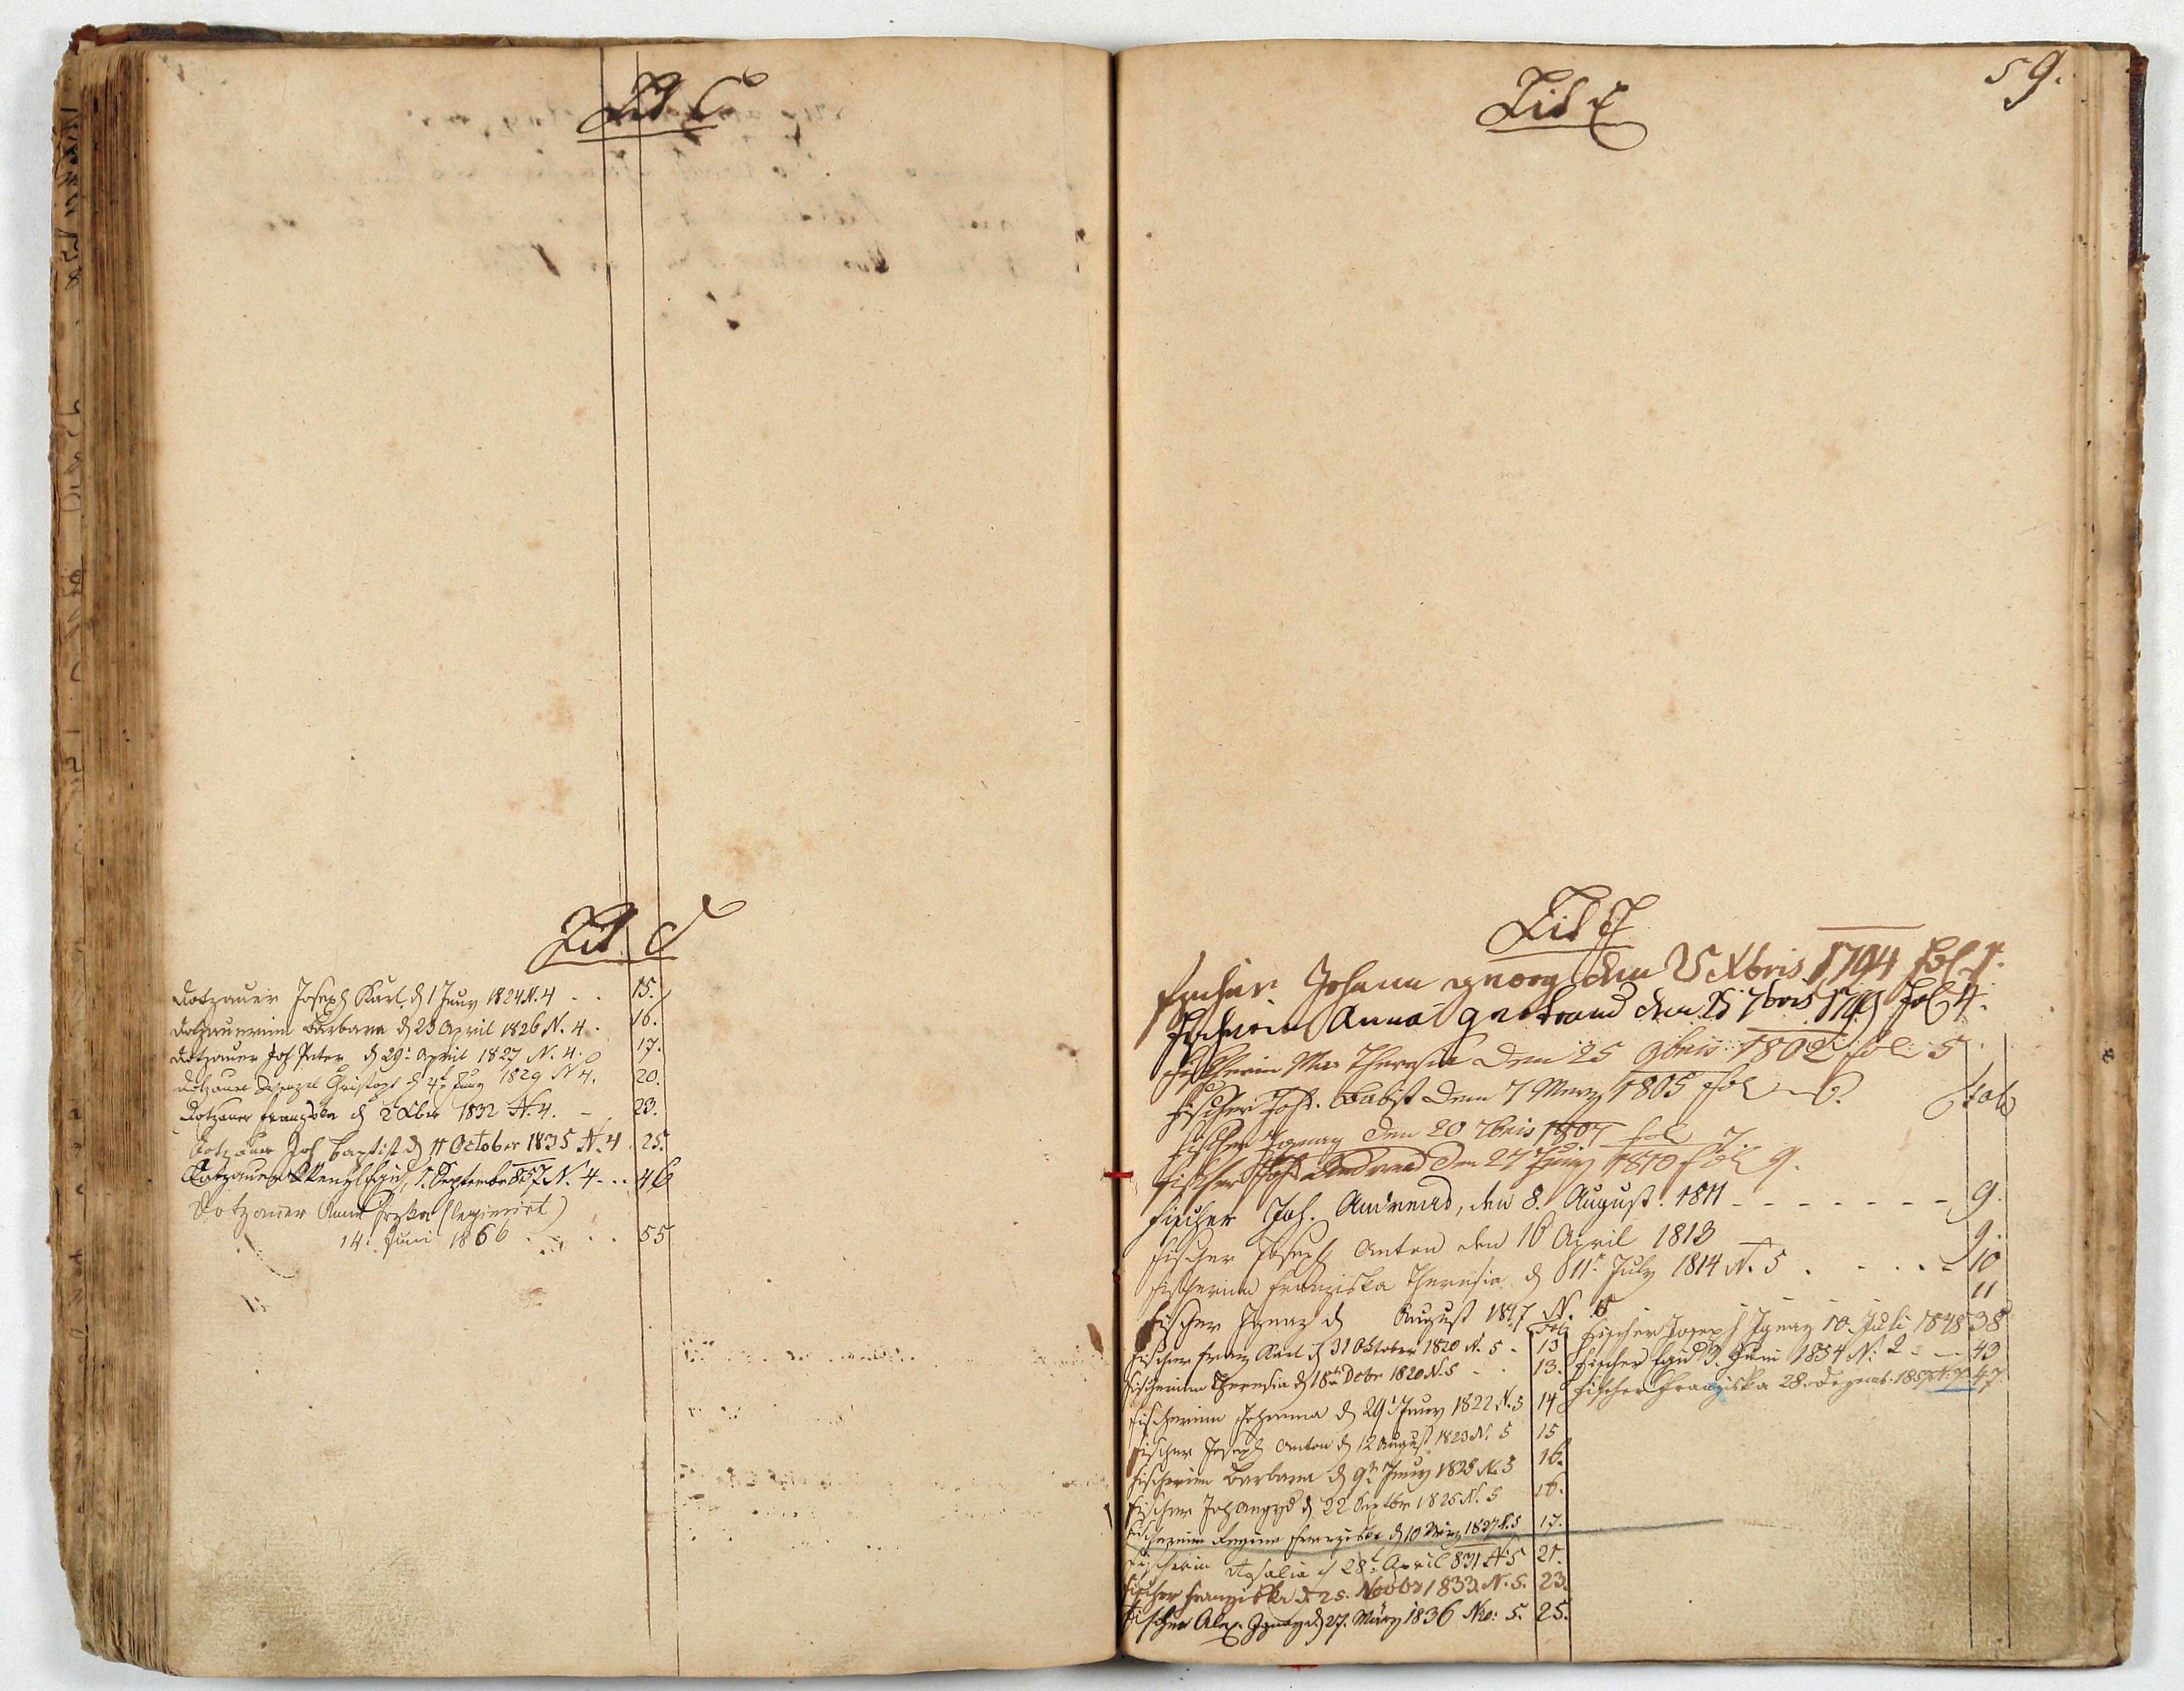 Lit C
Lit D
Dotzauer Joseph Karl d 1 Juny 1824 N. 4 - . 15.
Dotzauerinn Barbara d 23 April 1826 N. 4 . 16.
Dotzauer Joh Peter d 29t April 1827 N. 4. 17.
Dotzauer Wenzel Christoph d 4t Juny 1829 N 4. 20.
Dotzauer Franziska d 2 1832 N. 4. - 23.
Dotzauer Joh Baptist d 11 October 1835 N. 4 25.
Dotzauer 1. September 857 N. 4 - . . 46
Dotzauer Anna (legimirt)
14. Juni 1866 . . . . 55
59.
Lit E
Lit F
Fischer Johann georg den Xbris 1794 fol 1.
Anna gertraud den 7bris fol 4.
Fischerin Mar Theresia den 25 9bris 1802 fol 5
Fischer Joh. Babst den 7 Merz 1805 fol 6.
Fischer Ignaz den 20 7bris 1807 fol 7.
Fischer Joh Andreas den 27 Juny 1810 fol 9.
Fischer Joh. Andreas, den 8. August. 1811 - - - - - - - 9.
Fischer Joseph Anton den 16 April 1813 9.
Fischerinn Franziska Theresia d 11t July 1814 N. 5 . - . . - 10
Fischer Ignaz d August 1817 N. 5 11
Fol
Fischer Franz Karl d 31 Oktober 1820 N. 5 - 13
Fischerinn Theresia d 18 Octbr 1820 N. 5 - - 13.
Fischerinn Johanna d 29t Juny 1822 N. 5 14
Fischer Joseph Anton d 12 August 1823 N. 5 15
Fischerinn Barbara d 9t Juny 1825 N. 5 16.
Fischer Joh d 22 Septbr 1825 N. 5 16.
Fischerinn Regina Franziska d 10 März 1827 N. 5 17.
Fischerin Rosalia d 28t April 831 N 5 21.
Fischer Franziska d. 25. Novbr 1833. N. 5. 23.
Fischer Alex. Ignaz d 27. März 1836 Nro: 5. 25.
Fischer Joseph Ignaz 10. Juli 1848 38
Fischer 3. Juni 1854 N. 2 - - - 43
Fischer Franziska 28. Dezemb. 47.